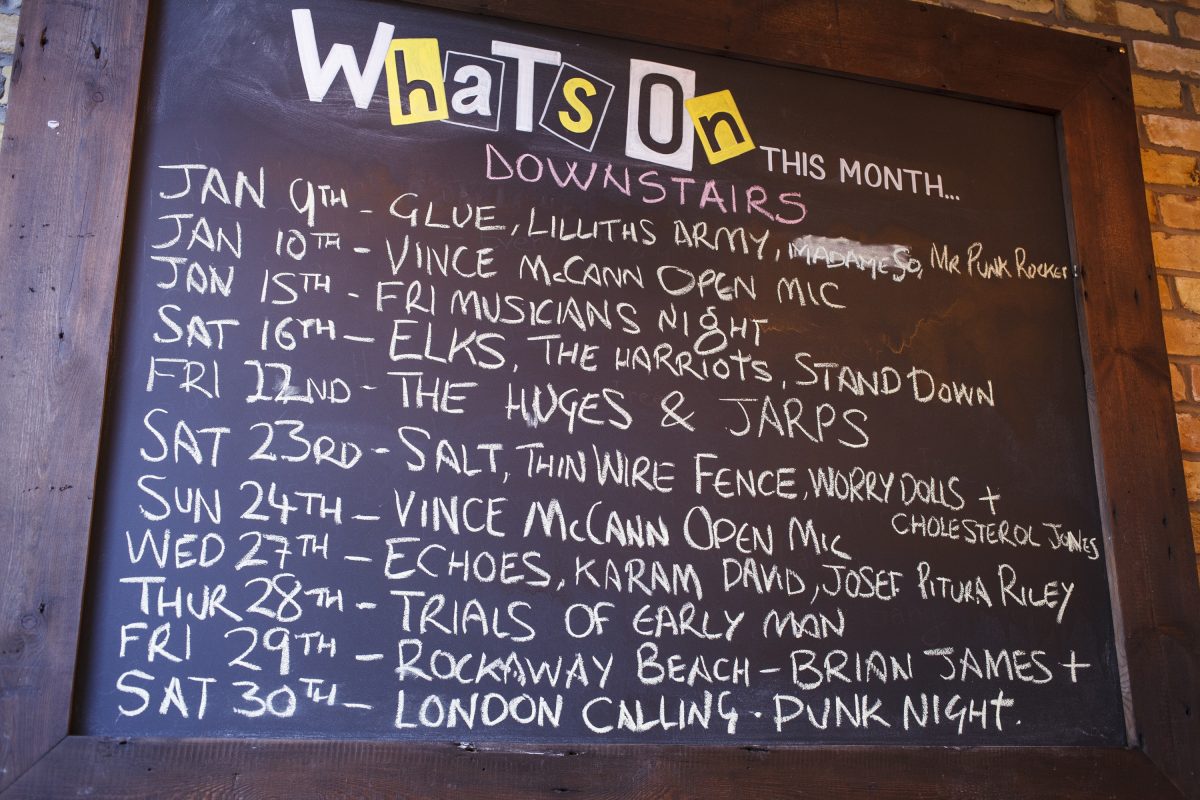 WhaTs On THIS MONTH...
DOWNSTAIRS
JAN 9TH - GLUE, LILLITHS ARMY, MADAME SO, MR PUNK ROCKER
JAN 10TH - VINCE McCANN OPEN MIC
JAN 15TH - FRI MUSICIANS NIGHT
SAT 16TH - ELKS, THE HARRIOTS, STAND DOWN
FRI 22ND - THE HUGES & JARPS
SAT 23RD - SALT, THIN WIRE FENCE, WORRY DOLLS +
CHOLESTEROL JONES
SUN 24TH - VINCE McCANN OPEN MIC
WED 27TH - ECHOES, KARAM DAVID, JOSEF PITURA RILEY
THUR 28TH - TRIALS OF EARLY MAN
FRI 29TH - ROCKAWAY BEACH - BRIAN JAMES +
SAT 30TH - LONDON CALLING · PUNK NIGHT.